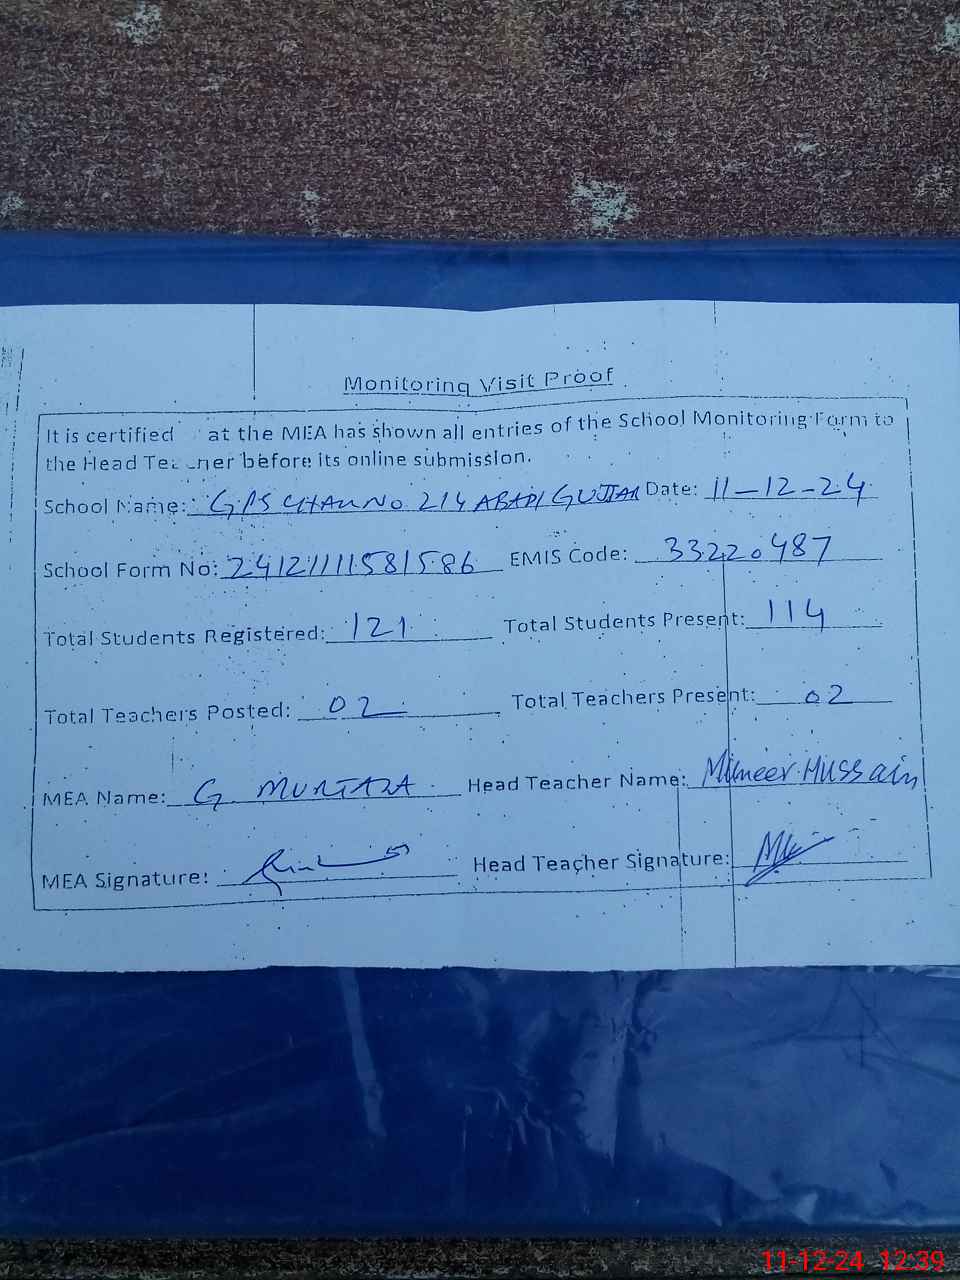 Monitoring Visit Proof
It is certified at the MEA has shown all entries of the School Monitoring Form to
the Head Teacher before its online submission.
School Name: GPS CHAK NO 214 ABADI GUJJAR Date: 11-12-24
School Form No: EMIS Code: 33220487
Total Students Registered: 121 Total Students Present: 114
Total Teachers Posted: 02 Total Teachers Present: 02
MEA Name: G. MURTAZA Head Teacher Name: Hussain
MEA Signature: Head Teacher Signature:
11-12-24 12:39